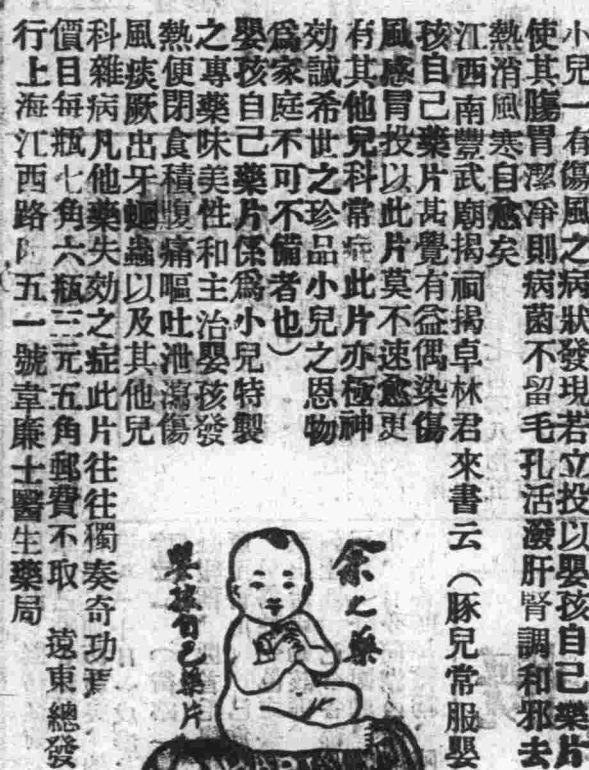 小兒一有傷風之病狀發現若立投以嬰孩自己藥片
使其腸胃潔淨則病菌不留毛孔活潑肝腎調和邪去
熱消風寒自愈矣
江西南豐武廟揭祠揭卓林君來書云（豚兒常服嬰
孩自己藥片甚覺有益偶染傷
風感冒投以此片莫不速愈更
有其他兒科常症此片亦極神
効誠希世之珍品小兒之恩物
爲家庭不可不備者也）
嬰孩自己藥片係爲小兒特製
之專藥味美性和主治嬰孩發
熱便閉食積腹痛嘔吐泄瀉傷
風痰厥出牙蛔蟲以及其他兒
科雜病凡他藥失効之症此片往往獨奏奇功焉
價目每瓶七角六瓶三元五角郵費不取 遠東總發
行上海江西路五一號韋廉士醫生藥局
余之藥
嬰孩自己藥片